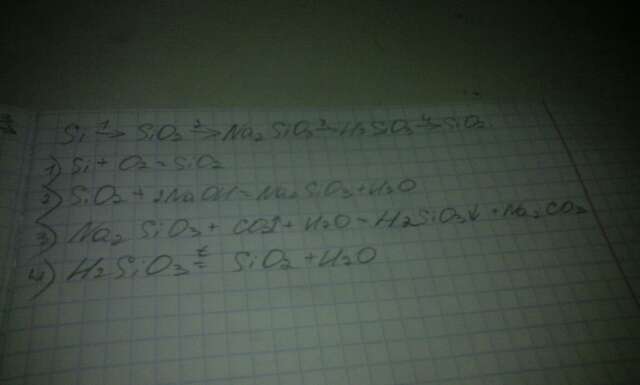 Si 1→ SiO2 2→ Na2SiO3 3→ H2SiO3 4→ SiO2
1) Si + O2 = SiO2
2) SiO2 + 2NaOH = Na2SiO3 + H2O
3) Na2SiO3 + CO2 + H2O = H2SiO3↓ + Na2CO3
4) H2SiO3 t= SiO2 + H2O